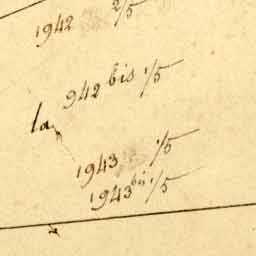 1942 2/5
942 bis 1/5
la
1943 1/5
1943 bis 1/5